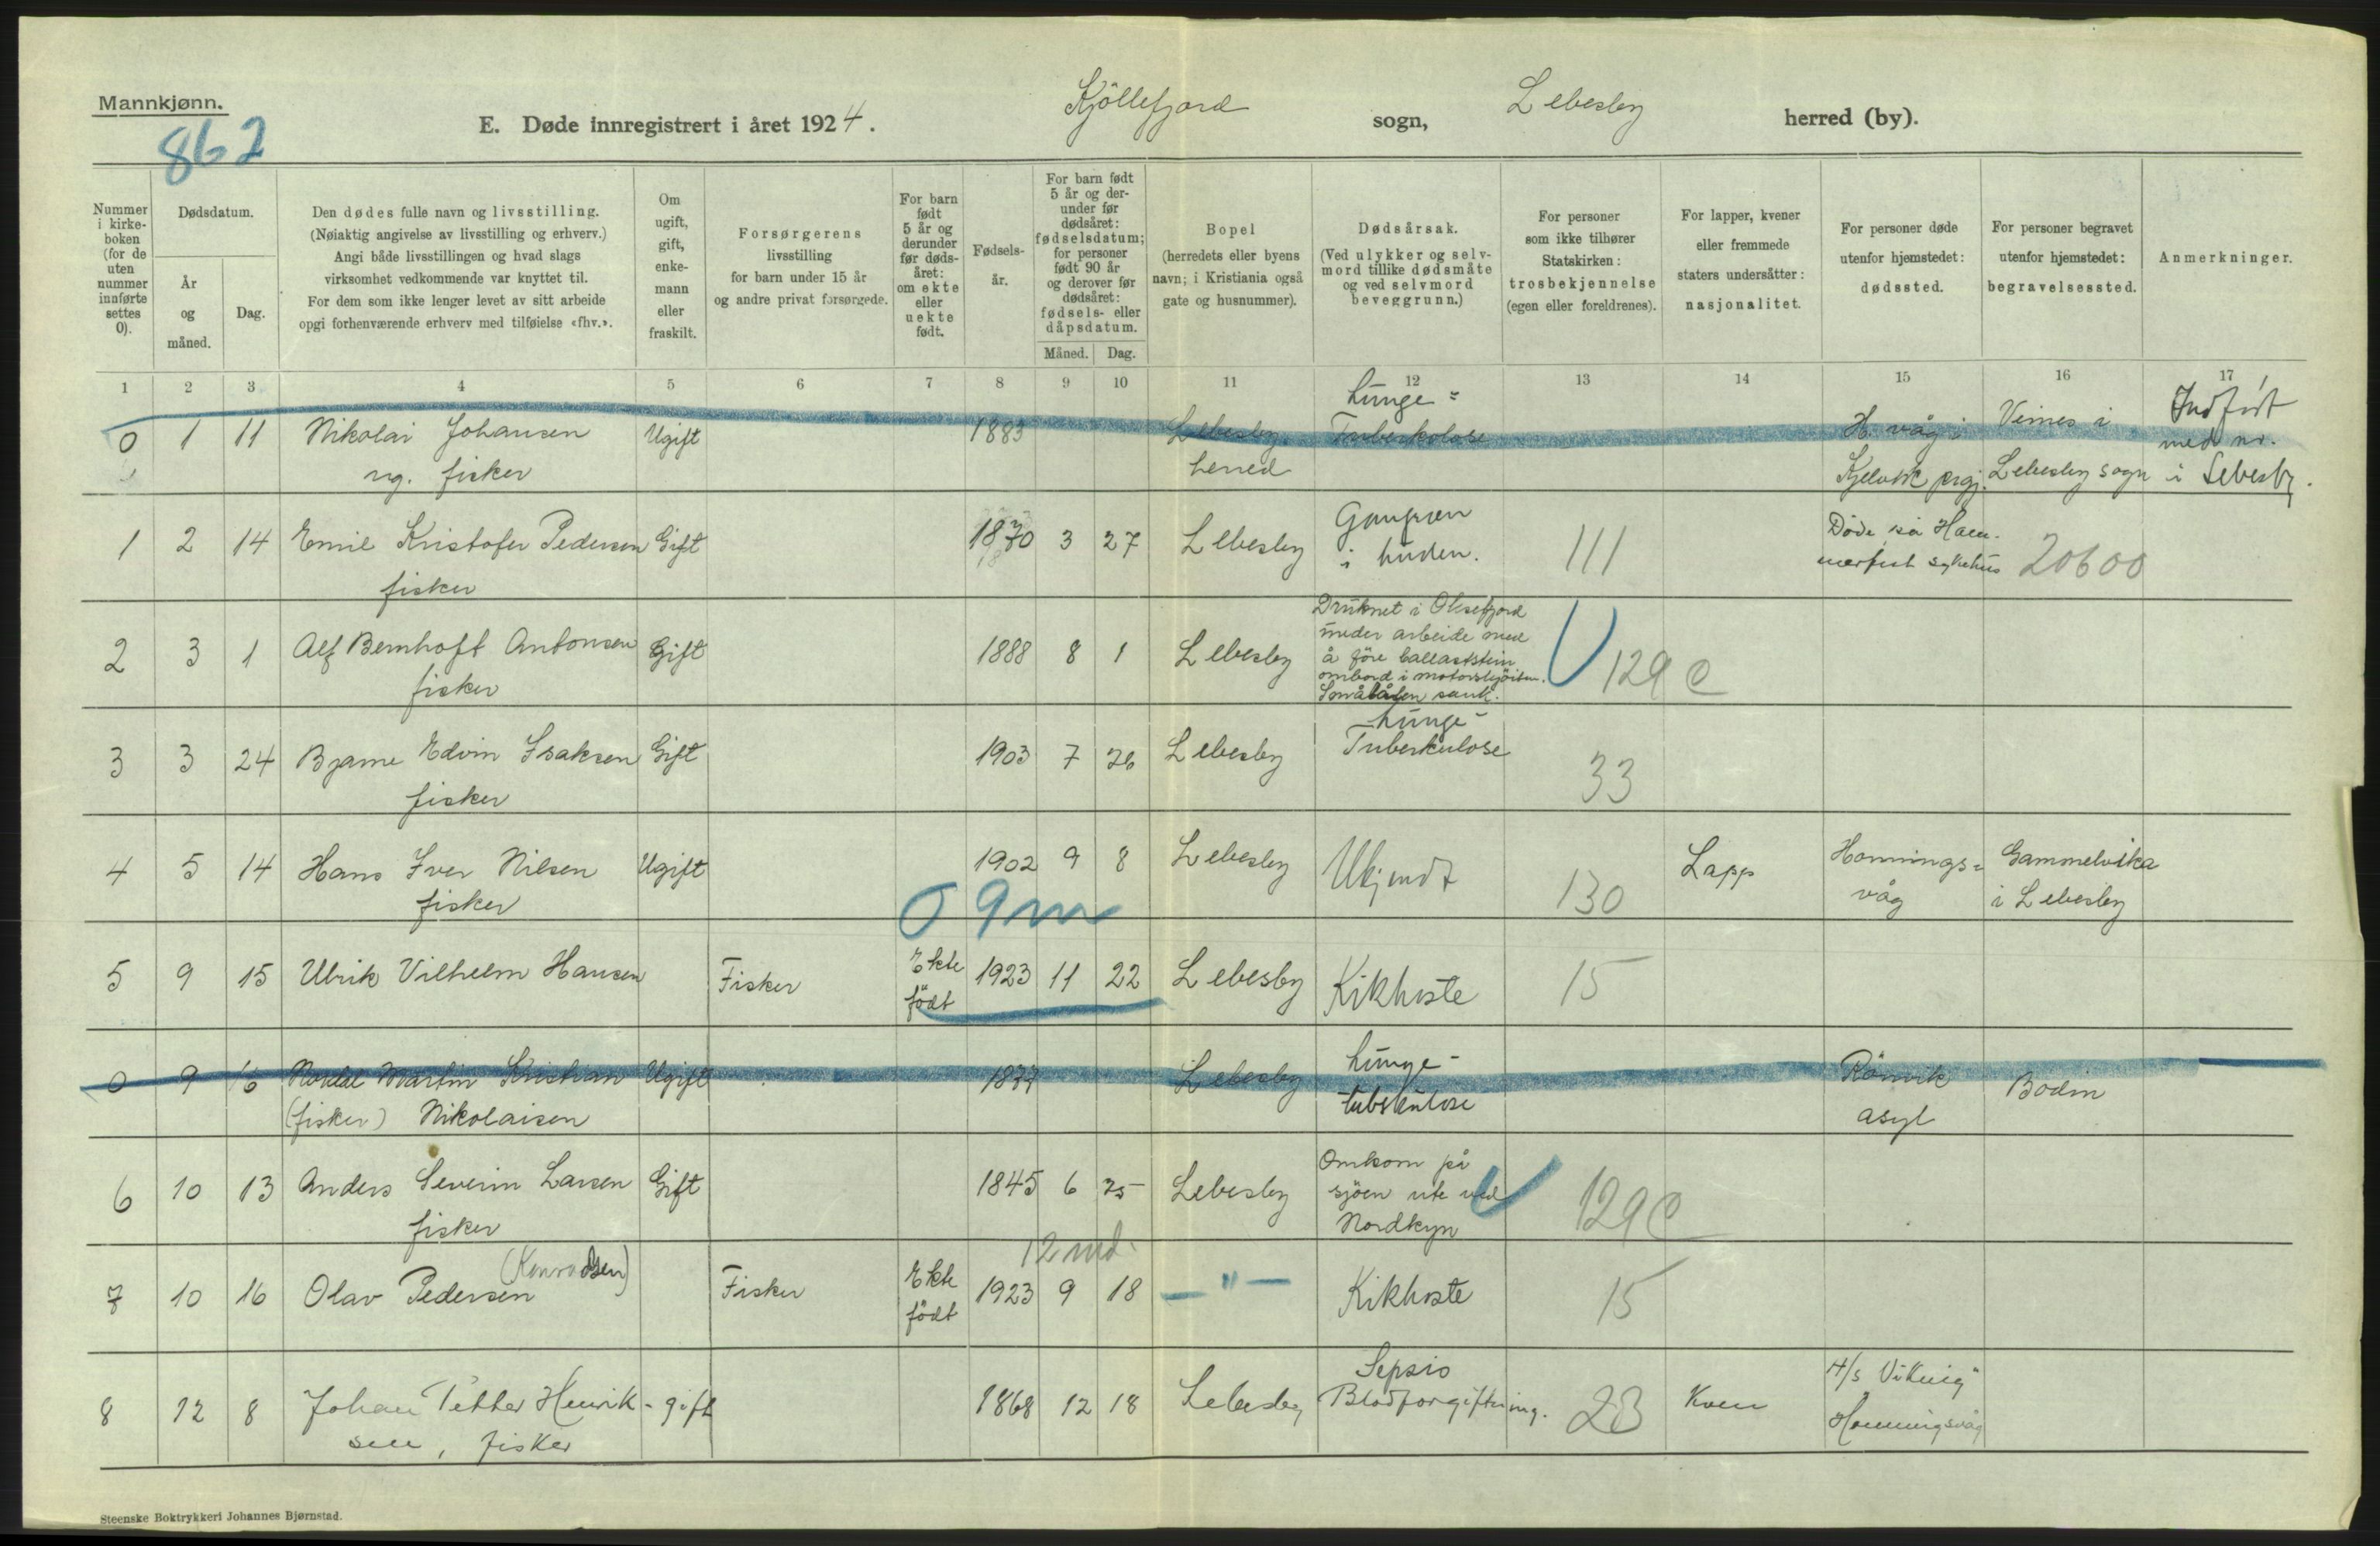 Mannkjønn.
862
E. Døde innregistrert i året 1924. Kjöllefjord sogn, Lebesby herred (by).
Nummer i kirkeboken (for de uten nummer innførte settes 0).
Dødsdatum.
År og måned.
Dag.
Den dødes fulle navn og livsstilling.
(Nøiaktig angivelse av livsstilling og erhverv.)
Angi både livsstillingen og hvad slags
virksomhet vedkommende var knyttet til.
For dem som ikke lenger levet av sitt arbeide
opgi forhenværende erhverv med tilføielse «fhv.».
Om ugift, gift, enkemann eller fraskilt.
Forsørgerens
livsstilling
for barn under 15 år
og andre privat forsørgede.
For barn født 5 år og derunder før dødsåret: om ekte eller uekte født.
Fødselsår.
For barn født 5 år og derunder før dødsåret: fødselsdatum; for personer født 90 år og derover før dødsåret: fødsels- eller dåpsdatum.
Måned. Dag.
Bopel
(herredets eller byens
navn; i Kristiania også
gate og husnummer).
Dødsårsak.
(Ved ulykker og selvmord tillike dødsmåte og ved selvmord beveggrunn.)
For personer
som ikke tilhører
Statskirken:
trosbekjennelse
(egen eller foreldrenes).
For lapper, kvener
eller fremmede
staters undersåtter:
nasjonalitet.
For personer døde
utenfor hjemstedet:
dødssted.
For personer begravet
utenfor hjemstedet:
begravelsessted.
Anmerkninger.
1 2 3 4 5 6 7 8 9 10 11 12 13 14 15 16 17
0 1 11 Nikolai Johansen Ugift 1883 Lebesby Lunge= Tuberkolose H. våg i Veines i Indført
ng. fisker herred Kjelvik prgj. Lebesby sogn med nr. i Lebesby.
1 2 14 Emil Kristofer Pedersen Gift 1870 3 27 Lebesby Gangren i huden. 111 Döde på Hammerfest sykehus 20600
fisker
2 3 1 Alf Bernhoft Antonsen Gift 1888 8 1 Lebesby Druknet i Oksefjord
under arbeide med
å före ballaststein
ombord i motorskjöiten.
Småbåten sank. 129 C
fisker
3 3 24 Bjarne Edvin Isaksen Gift 1903 7 26 Lebesby Lunge- Tuberkulose 33
fisker
4 5 14 Hans Iver Nilsen Ugift 1902 9 8 Lebesby Ukjendt 130 Lapp Honnings= våg Gammelvika i Lebesby
fisker
0 9m
5 9 15 Ulrik Vilhelm Hansen Fisker Ekte födt 1923 11 22 Lebesby Kikhoste 15
0 9 16 Martin Kristian Ugift 1877 Lebesby Lunge- tubskulose Rönvik asyl Bodin
(fisker) Nikolaisen
6 10 13 Anders Severin Larsen Gift 1845 6 25 Lebesby Omkom på
sjöen ute ved
Nordkyn 129 C
fisker
12 md.
7 10 16 Olav Pedersen (Konradsen) Fisker Ekte födt 1923 9 18 — " — Kikhoste 15
8 12 8 Johan Petter Henrik- gift 1868 12 18 Lebesby Sepsis Blodforgiftning. 23 Kven H/s Viking" Honningsvåg
sen, fisker
Steenske Boktrykkeri Johannes Bjørnstad.